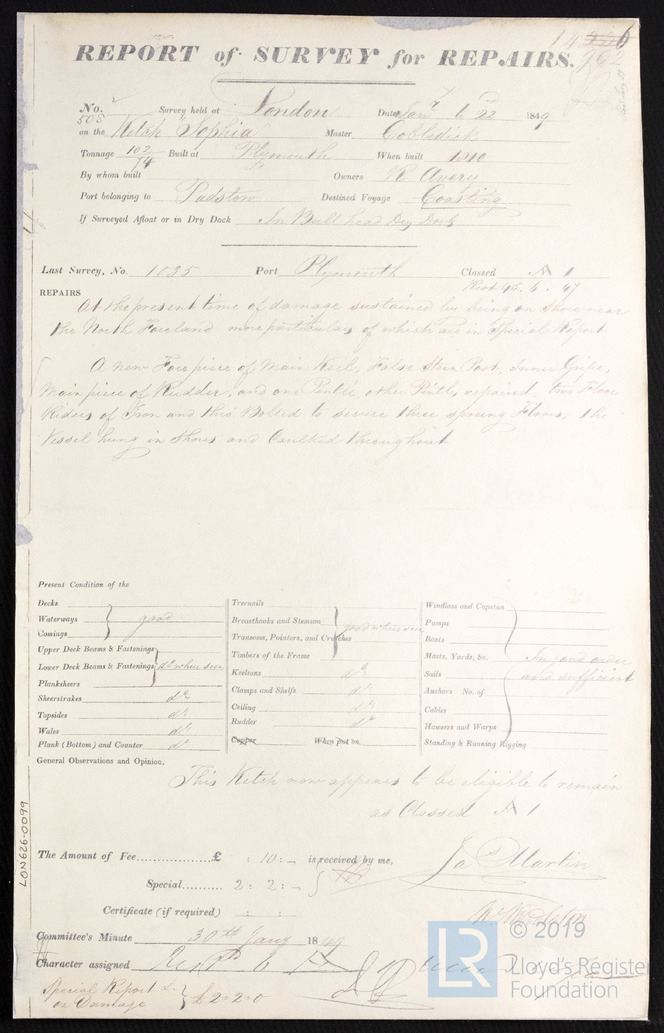 REPORT of SURVEY for REPAIRS.
No. 505 Survey held at London Date Jany 6 22 1849
on the Ketch "Sophia" Master Cobledick
Tonnage 102/74 Built at Plymouth When built 1810
By whom built Owners R Avery
Port belonging to Padstow Destined Voyage Coasting
If Surveyed Afloat or in Dry Dock In Bull head Dry Dock
Last Survey, No. 1035 Port Plymouth Classed Æ 1
REPAIRS
At the present time of damage sustained by being on Shore near
the North Foreland more particulars of which are in Special Report
A new Fore piece of Main Keel, False Stern Post, Inner Gripe,
Main piece of Rudder, and one Pintle other Pintle, repaired, two Floor
Riders of Iron and thro Bolted to secure three sprung Floors, the
Vessel hung in Shores and Caulked throughout
Present Condition of the
Decks
Waterways good
Comings
Upper Deck Beams & Fastenings
Lower Deck Beams & Fastenings do when seen
Planksheers
Sheerstrakes do
Topsides do
Wales do
Plank (Bottom) and Counter do
Treenails
Breasthooks and Stemson good when seen
Transoms, Pointers, and Crutches
Timbers of the Frame
Keelsons do
Clamps and Shelfs do
Ceiling do
Rudder do
Copper When put on
Windlass and Capstan
Pumps
Boats
Masts, Yards, &c. In good order
Sails and sufficient
Anchors No. of
Cables
Hawsers and Warps
Standing & Running Rigging
General Observations and Opinion,
This Ketch now appears to be eligible to remain
as Classed Æ 1
The Amount of Fee £ : 10 : - is received by me,
Special 2 : 2 : -
Jas Martin
Certificate (if required) : :
Committee's Minute 30th Jany 1849
Character assigned
Special Report &c
on Damage £2-2-0
LON626-0099
LR © 2019
Lloyd's Register
Foundation